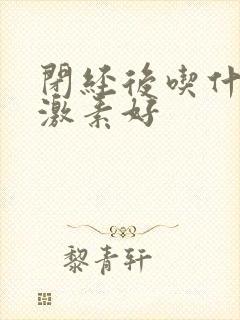 閉經後喫什
激素好
黎青轩